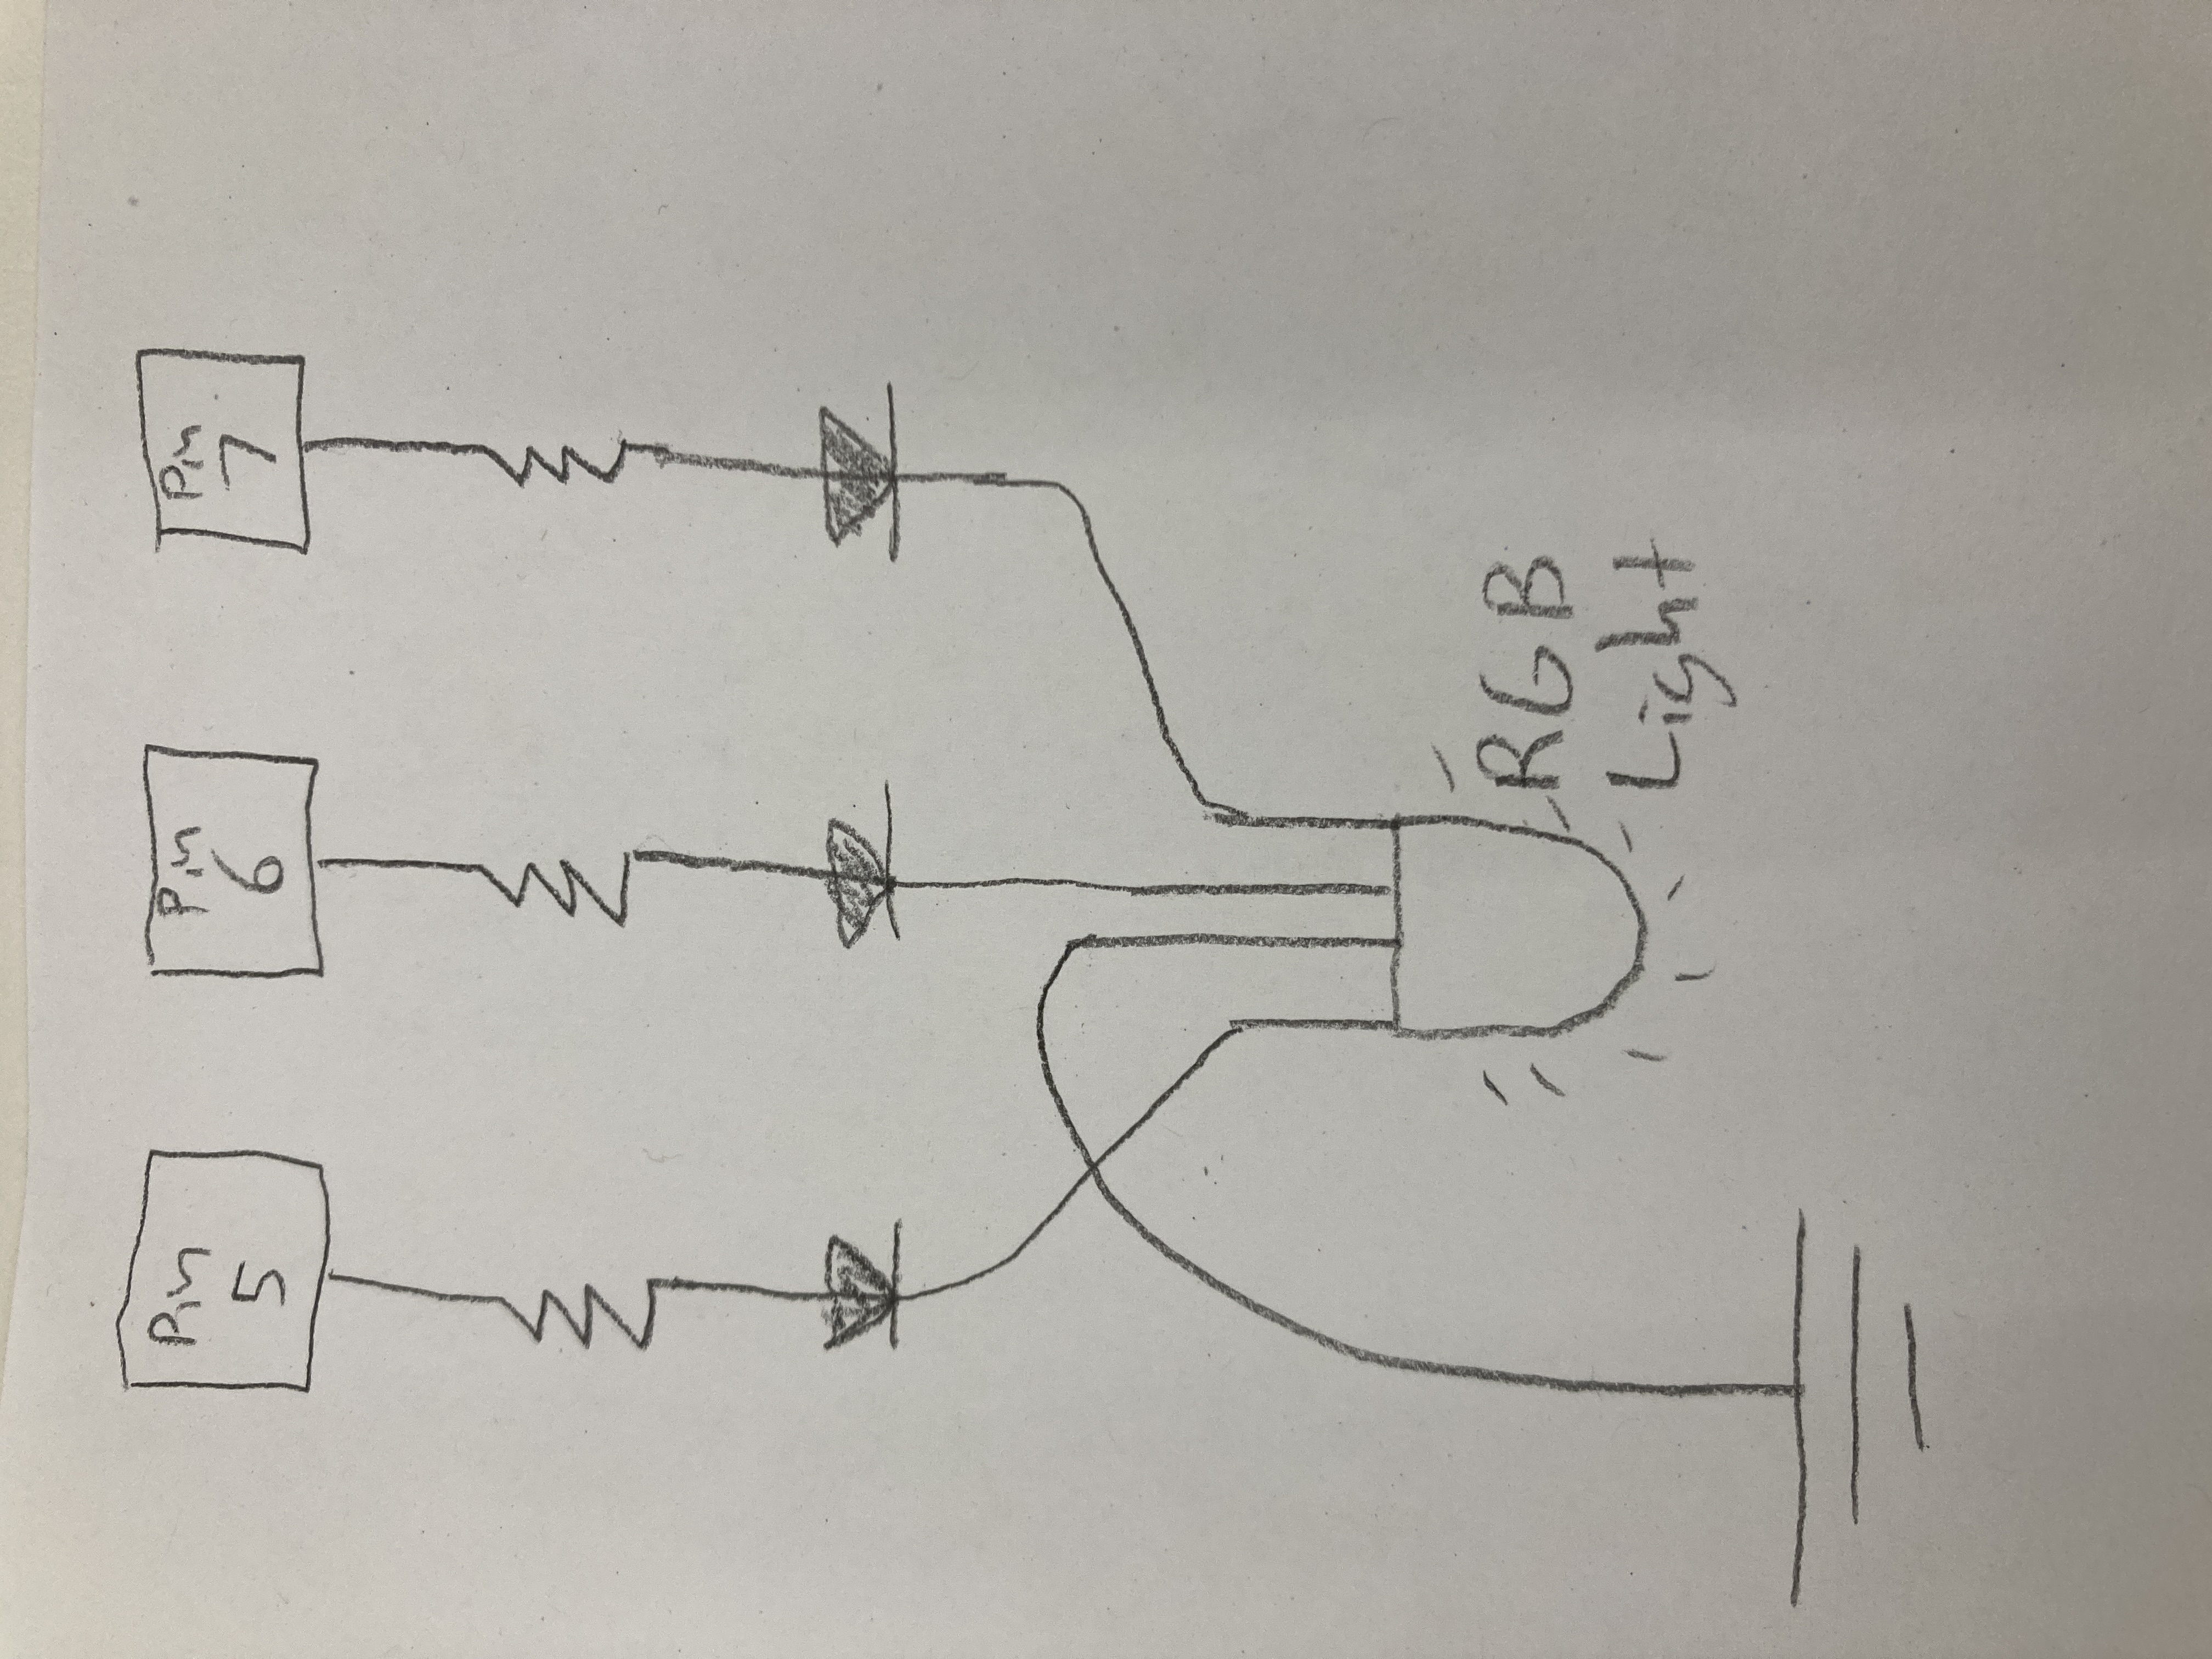 Pin
5
Pin
6
Pin
7
RGB
Light